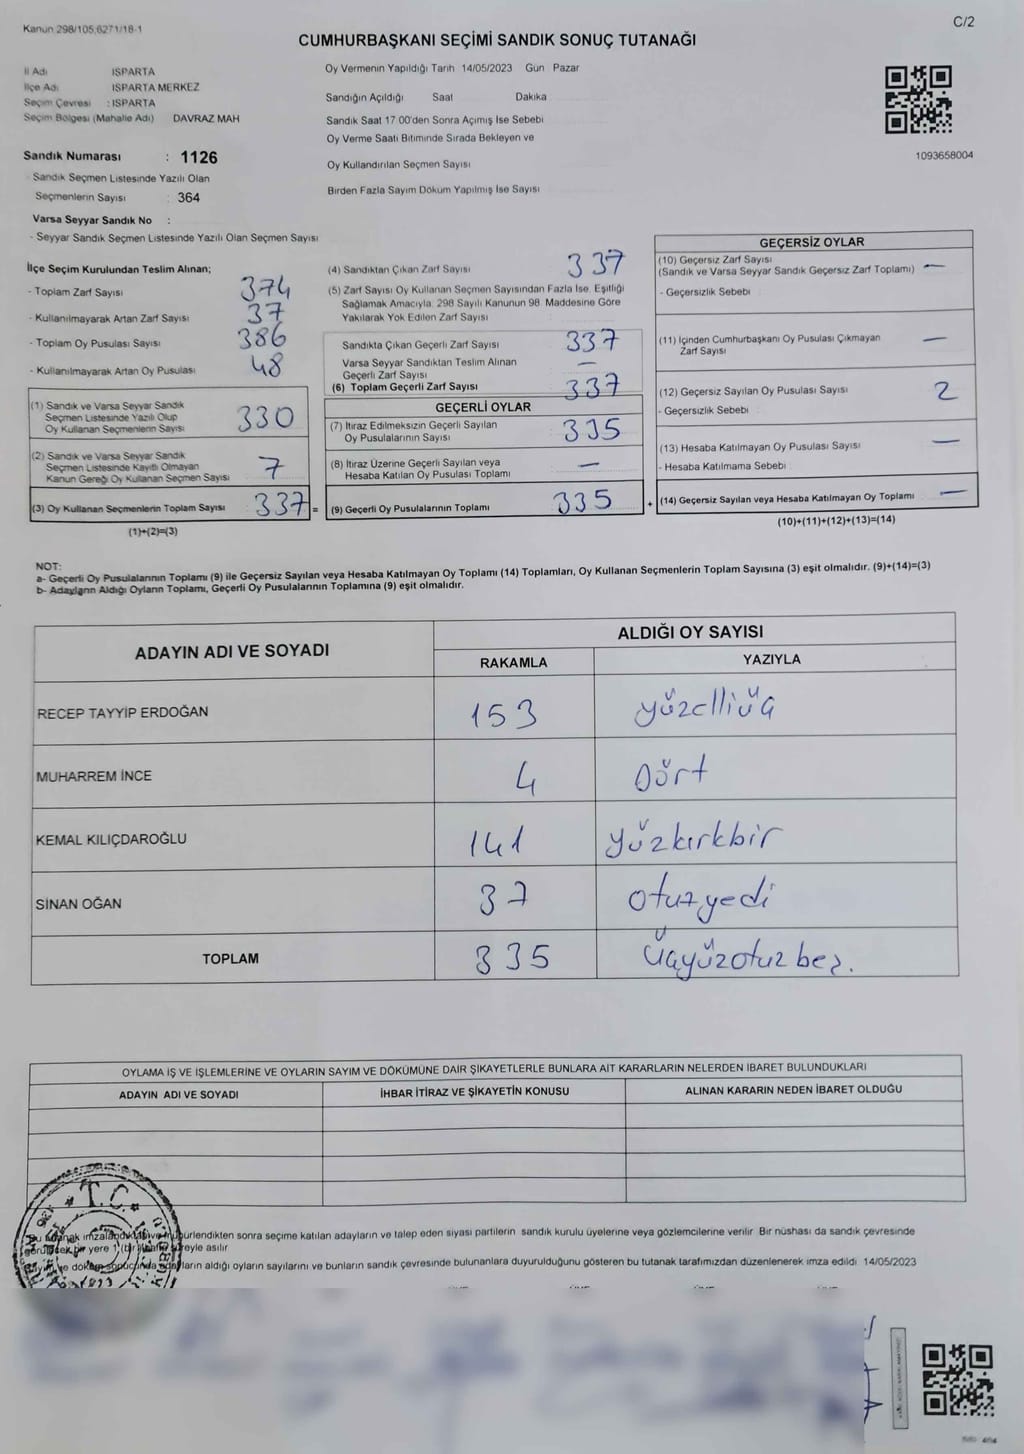 Kanun 298/105,6271/18-1
C/2
CUMHURBAŞKANI SEÇİMİ SANDIK SONUÇ TUTANAĞI
İl Adı ISPARTA
İlçe Adı ISPARTA MERKEZ
Seçim Çevresi : ISPARTA
Seçim Bölgesi (Mahalle Adı) DAVRAZ MAH
Sandık Numarası : 1126
Sandık Seçmen Listesinde Yazılı Olan
Seçmenlerin Sayısı : 364
Varsa Seyyar Sandık No :
- Seyyar Sandık Seçmen Listesinde Yazılı Olan Seçmen Sayısı
Oy Vermenin Yapıldığı Tarih 14/05/2023 Gün Pazar
Sandığın Açıldığı Saat Dakika
Sandık Saat 17 00'den Sonra Açımış İse Sebebi
Oy Verme Saati Bitiminde Sırada Bekleyen ve
Oy Kullandırılan Seçmen Sayısı
Birden Fazla Sayım Döküm Yapılmış İse Sayısı
1093658004
İlçe Seçim Kurulundan Teslim Alınan;
- Toplam Zarf Sayısı 374
- Kullanılmayarak Artan Zarf Sayısı 37
- Toplam Oy Pusulası Sayısı 386
- Kullanılmayarak Artan Oy Pusulası 48
(1) Sandık ve Varsa Seyyar Sandık
Seçmen Listesinde Yazılı Olup
Oy Kullanan Seçmenlerin Sayısı 330
(2) Sandık ve Varsa Seyyar Sandık
Seçmen Listesinde Kayıtlı Olmayan
Kanun Gereği Oy Kullanan Seçmen Sayısı 7
(3) Oy Kullanan Seçmenlerin Toplam Sayısı 337 =
(1)+(2)=(3)
(4) Sandıktan Çıkan Zarf Sayısı 337
(5) Zarf Sayısı Oy Kullanan Seçmen Sayısından Fazla İse, Eşitliği
Sağlamak Amacıyla 298 Sayılı Kanunun 98. Maddesine Göre
Yakılarak Yok Edilen Zarf Sayısı
Sandıkta Çıkan Geçerli Zarf Sayısı 337
Varsa Seyyar Sandıktan Teslim Alınan
Geçerli Zarf Sayısı —
(6) Toplam Geçerli Zarf Sayısı 337
GEÇERLİ OYLAR
(7) İtiraz Edilmeksizin Geçerli Sayılan
Oy Pusulalarının Sayısı 335
(8) İtiraz Üzerine Geçerli Sayılan veya
Hesaba Katılan Oy Pusulası Toplamı —
(9) Geçerli Oy Pusulalarının Toplamı 335 +
GEÇERSİZ OYLAR
(10) Geçersiz Zarf Sayısı
(Sandık ve Varsa Seyyar Sandık Geçersiz Zarf Toplamı) —
- Geçersizlik Sebebi
(11) İçinden Cumhurbaşkanı Oy Pusulası Çıkmayan
Zarf Sayısı —
(12) Geçersiz Sayılan Oy Pusulası Sayısı 2
- Geçersizlik Sebebi
(13) Hesaba Katılmayan Oy Pusulası Sayısı —
- Hesaba Katılmama Sebebi
(14) Geçersiz Sayılan veya Hesaba Katılmayan Oy Toplamı —
(10)+(11)+(12)+(13)=(14)
NOT:
a- Geçerli Oy Pusulalarının Toplamı (9) ile Geçersiz Sayılan veya Hesaba Katılmayan Oy Toplamı (14) Toplamları, Oy Kullanan Seçmenlerin Toplam Sayısına (3) eşit olmalıdır. (9)+(14)=(3)
b- Adayların Aldığı Oyların Toplamı, Geçerli Oy Pusulalarının Toplamına (9) eşit olmalıdır.
ADAYIN ADI VE SOYADI
ALDIĞI OY SAYISI
RAKAMLA YAZIYLA
RECEP TAYYİP ERDOĞAN 153 yüzelliüç
MUHARREM İNCE 4 Dört
KEMAL KILIÇDAROĞLU 141 yüzkırkbir
SİNAN OĞAN 37 otuzyedi
TOPLAM 335 Üçyüzotuz beş.
OYLAMA İŞ VE İŞLEMLERİNE VE OYLARIN SAYIM VE DÖKÜMÜNE DAİR ŞİKAYETLERLE BUNLARA AİT KARARLARIN NELERDEN İBARET BULUNDUKLARI
ADAYIN ADI VE SOYADI İHBAR İTİRAZ VE ŞİKAYETİN KONUSU ALINAN KARARIN NEDEN İBARET OLDUĞU
T.C.
sonra seçime katılan adayların ve talep eden siyasi partilerin sandık kurulu üyelerine veya gözlemcilerine verilir Bir nüshası da sandık çevresinde
bir yere 1 asılır
aldığı oyların sayılarını ve bunların sandık çevresinde bulunanlara duyurulduğunu gösteren bu tutanak tarafımızdan düzenlenerek imza edildi 14/05/2023